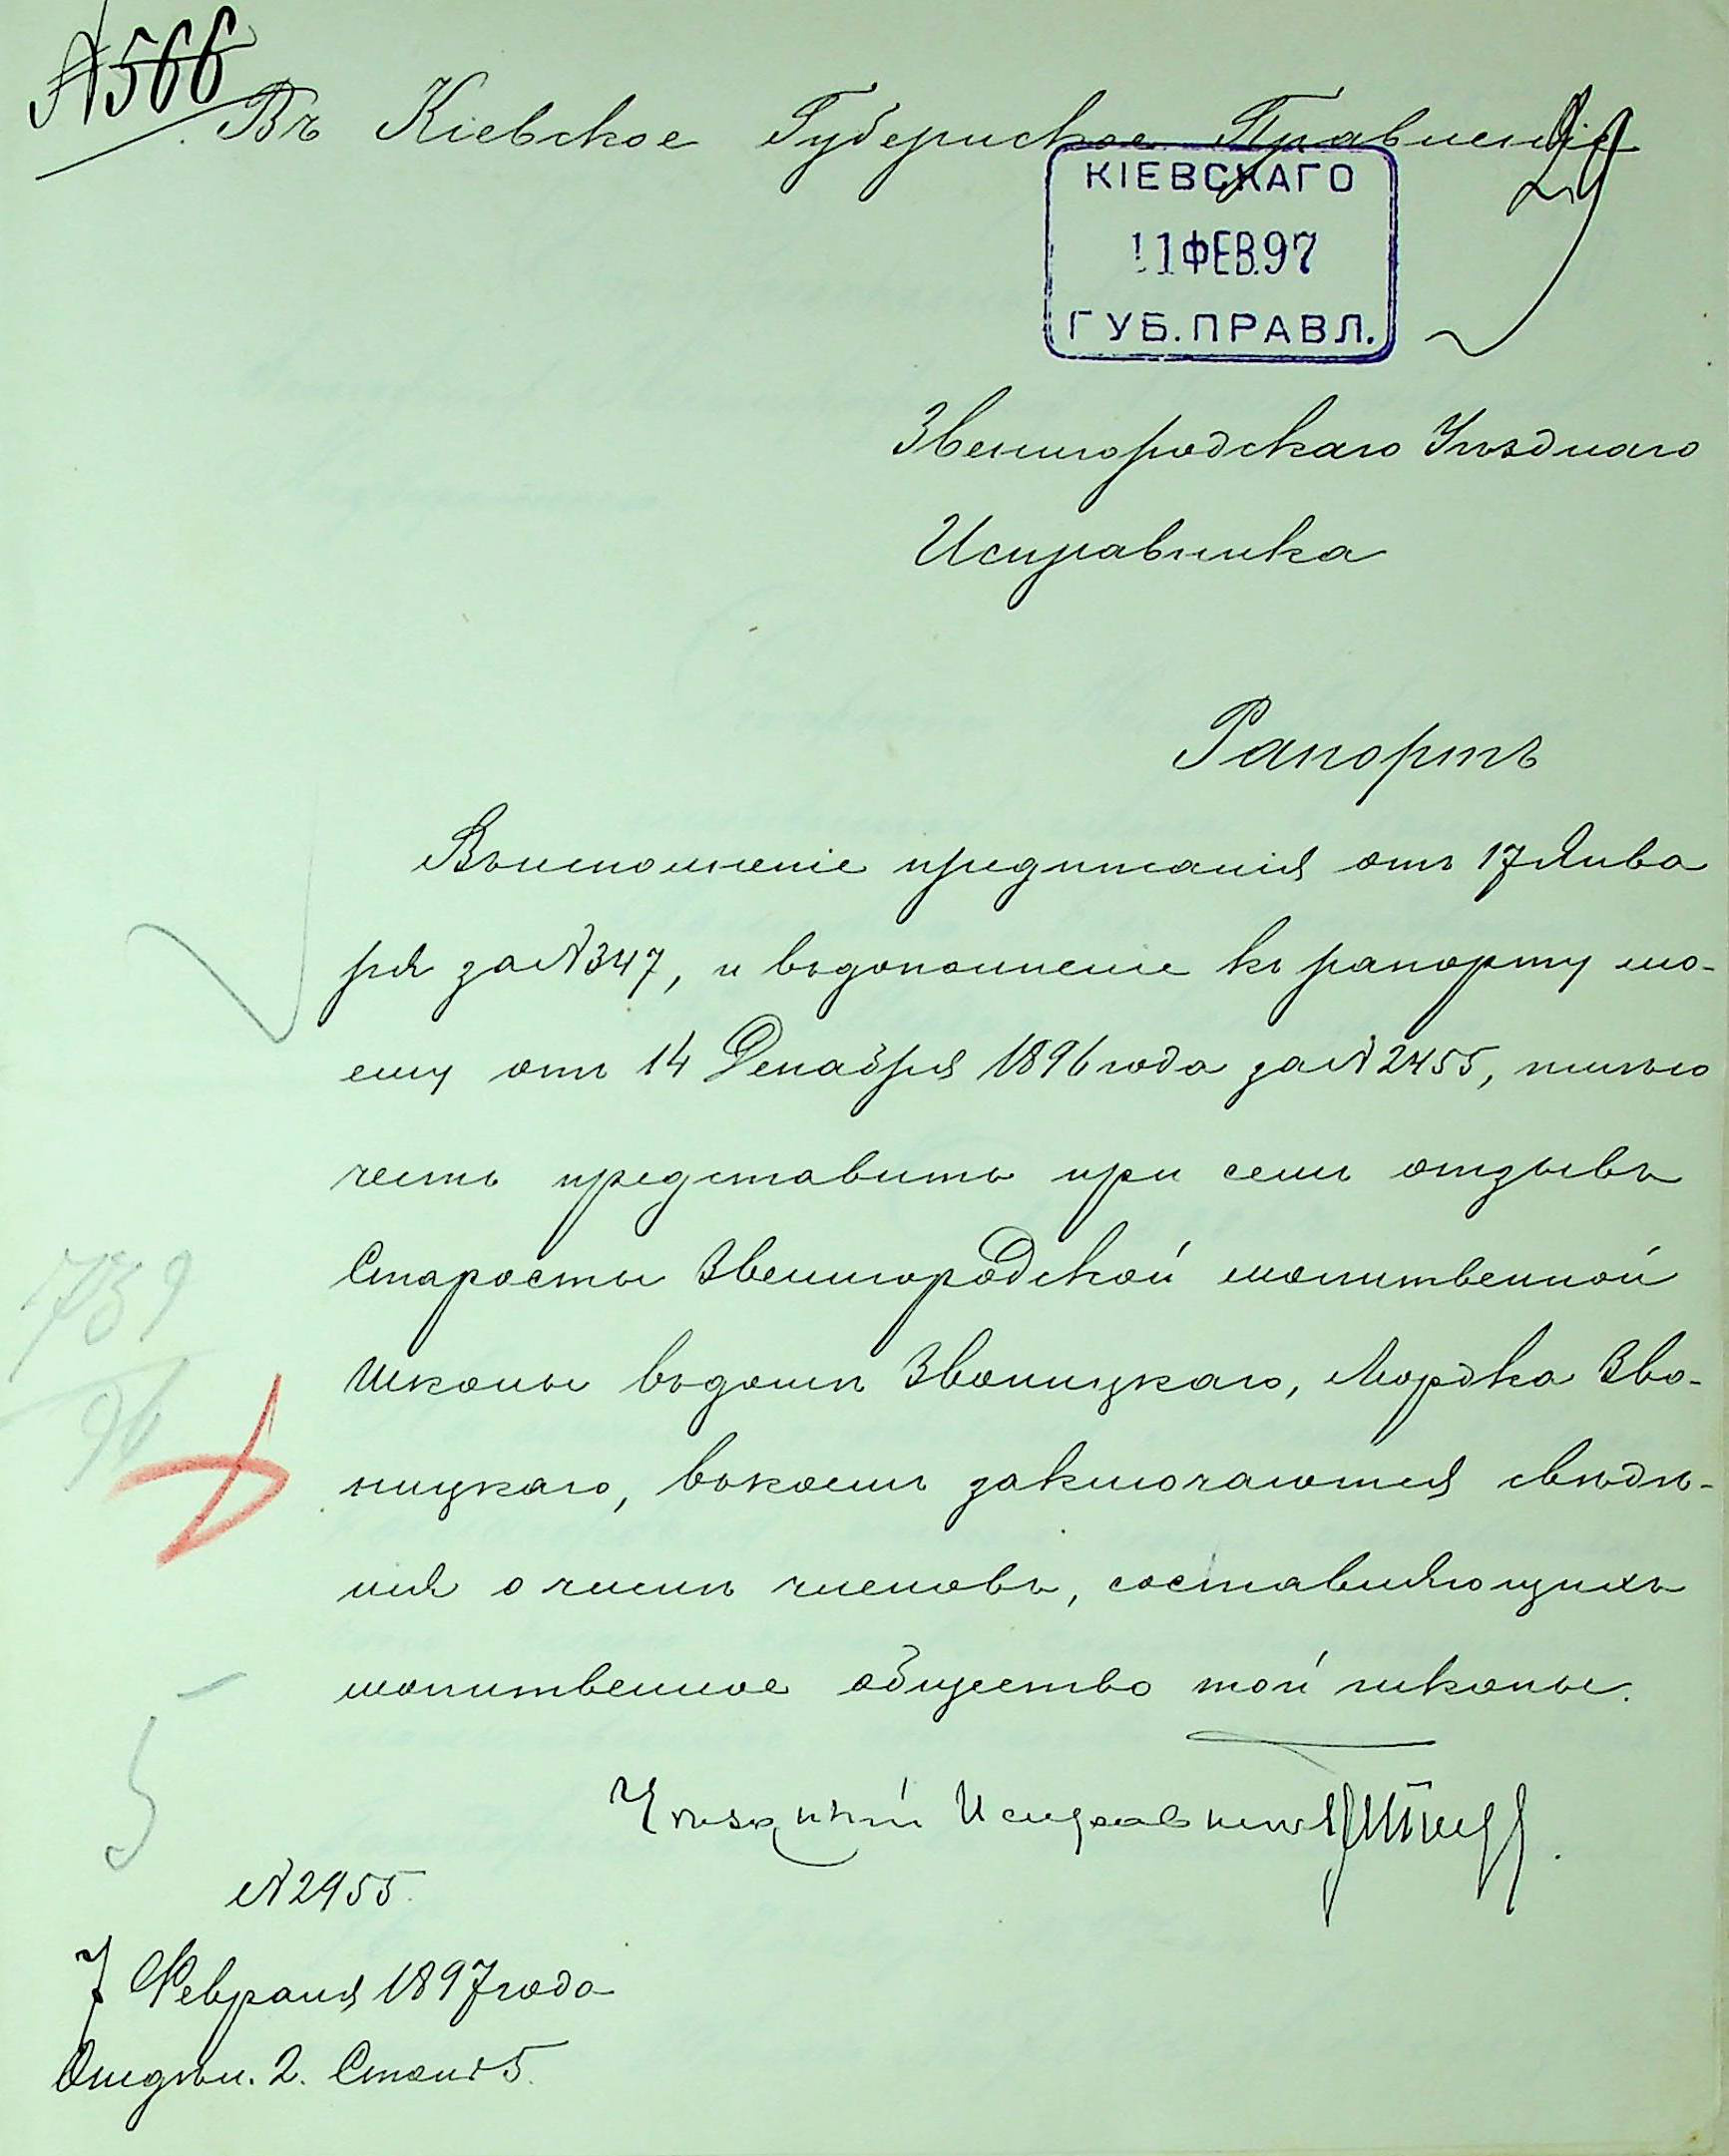 №566
Въ Кіевское Губернское Правленіе
29
КІЕВСКАГО
11 ФЕВ.97
ГУБ.ПРАВЛ.
Звенигородскаго Уѣзднаго
Исправника
Рапортъ
Въисполненіе предписанія отъ 17 Янва
ря за №347, и въдополненіе къ рапорту мо-
ему отъ 14 Декабря 1896 года за №2455, имѣю
честь представить при семъ отзывъ
Старосты Звенигородской молитвенной
школы въдомѣ Звоницкаго, Мордка Зво-
ницкаго, въкоемъ заключаются свѣдѣ-
нія о числѣ членовъ, составляющихъ
молитвенное общество той школы.
739
96
5
Уѣздный Исправникъ
№2955.
7 Февраля 1897 года
Отдѣл. 2. Столъ 5.